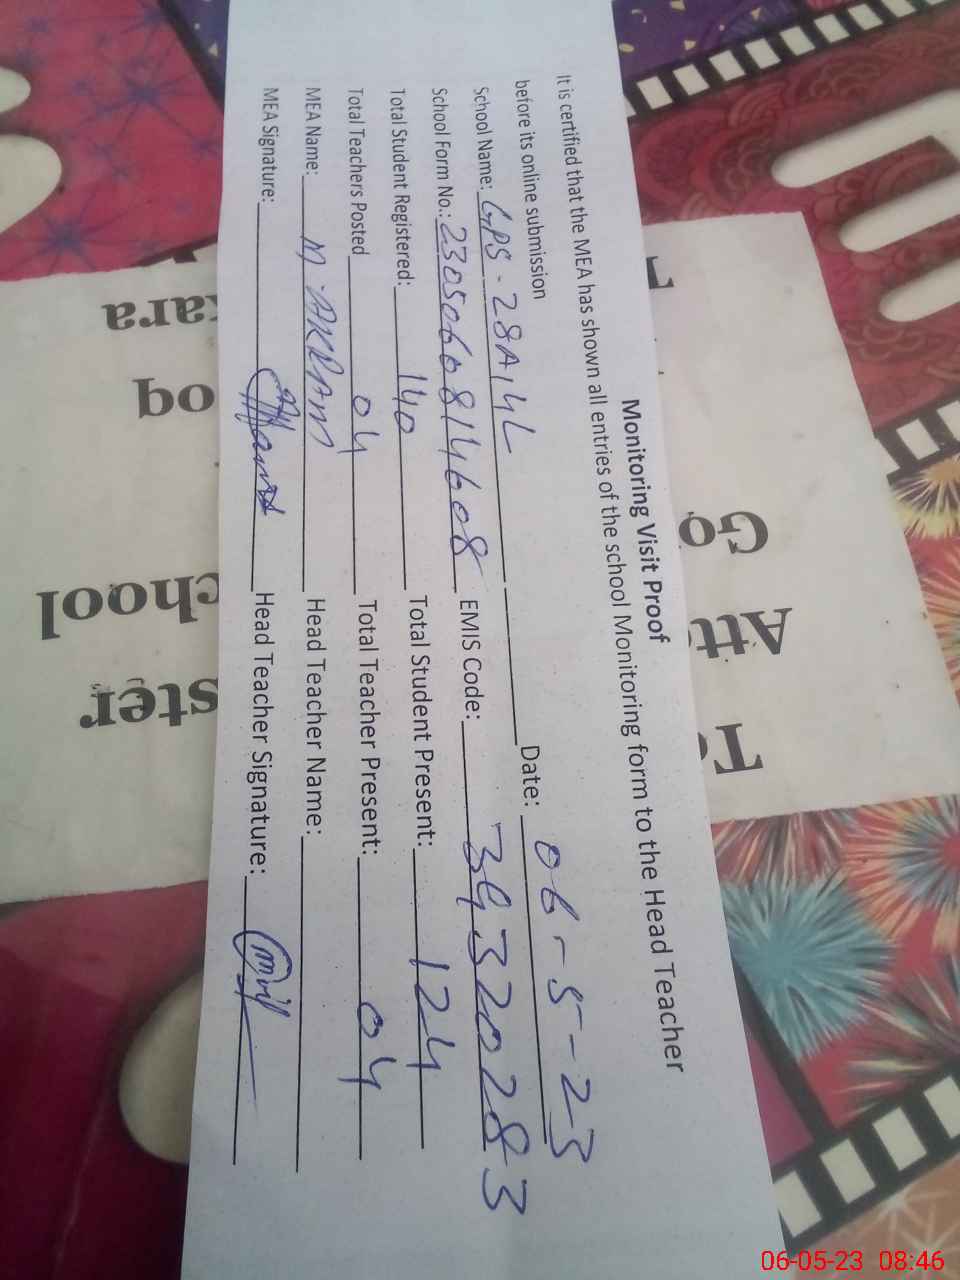 Monitoring Visit Proof
It is certified that the MEA has shown all entries of the school Monitoring form to the Head Teacher
before its online submission
School Name: GPS-28A14L Date: 06-5-23
School Form No.: 2305060814608 EMIS Code: 39320283
Total Student Registered: 140 Total Student Present: 124
Total Teachers Posted 04 Total Teacher Present: 04
MEA Name: M.AKRAM Head Teacher Name:
MEA Signature: Head Teacher Signature:
Go
Att
kara
chool
ster
06-05-23 08:46